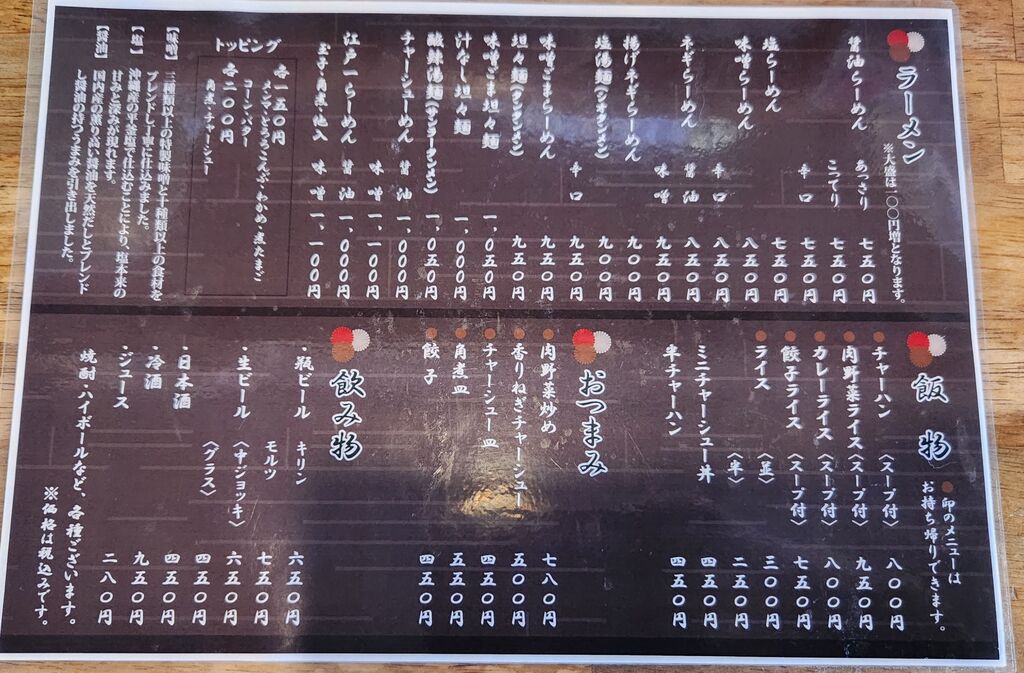 ラーメン
※大盛は一〇〇円増となります。
醤油らーめん あっさり 七五〇円
こってり 七五〇円
辛口 七五〇円
塩らーめん 七五〇円
味噌らーめん 八五〇円
辛口 八五〇円
ネギらーめん 醤油 八五〇円
味噌 九五〇円
揚げネギらーめん 九〇〇円
塩湯麺(シオタンメン) 九〇〇円
辛口 九五〇円
味噌ごまらーめん 九五〇円
坦々麺(タンタンメン) 九五〇円
味噌ごま坦々麺 一、〇五〇円
汁なし坦々麺 一、〇〇〇円
酸辣湯麺(サンラータンメン) 一、〇五〇円
チャーシューめん 醤油 一、〇〇〇円
味噌 一、一〇〇円
江戸一らーめん 醤油 一、〇〇〇円
玉子・角煮・他入 味噌 一、一〇〇円
トッピング
各一五〇円
メンマ・とろろこんぶ・わかめ・煮たまご
コーン・バター
各二〇〇円
角煮・チャーシュー
【味噌】 三種類以上の特製味噌と十種類以上の食材を
ブレンドし丁寧に仕込みました。
【塩】 沖縄産の平釜塩で仕込むことにより、塩本来の
甘みと深みが現れます。
【醤油】 国内産の薫り高い醤油を天然だしとブレンド
し醤油の持つうまみを引き出しました。
飯物
●印のメニューは
お持ち帰りできます。
●チャーハン〈スープ付〉 八〇〇円
●肉野菜ライス〈スープ付〉 九五〇円
●カレーライス〈スープ付〉 八〇〇円
●餃子ライス〈スープ付〉 七五〇円
●ライス〈並〉 三〇〇円
〈半〉 二五〇円
ミニチャーシュー丼 四五〇円
半チャーハン 四五〇円
おつまみ
●肉野菜炒め 七八〇円
●香りねぎチャーシュー 五〇〇円
●チャーシュー皿 四五〇円
●角煮皿 五五〇円
●餃子 四五〇円
飲み物
・瓶ビール キリン 六五〇円
モルツ 七五〇円
・生ビール〈中ジョッキ〉 六五〇円
〈グラス〉 四五〇円
・日本酒 四五〇円
・冷酒 九五〇円
・ジュース 二八〇円
焼酎・ハイボールなど、各種ございます。
※価格は税込みです。